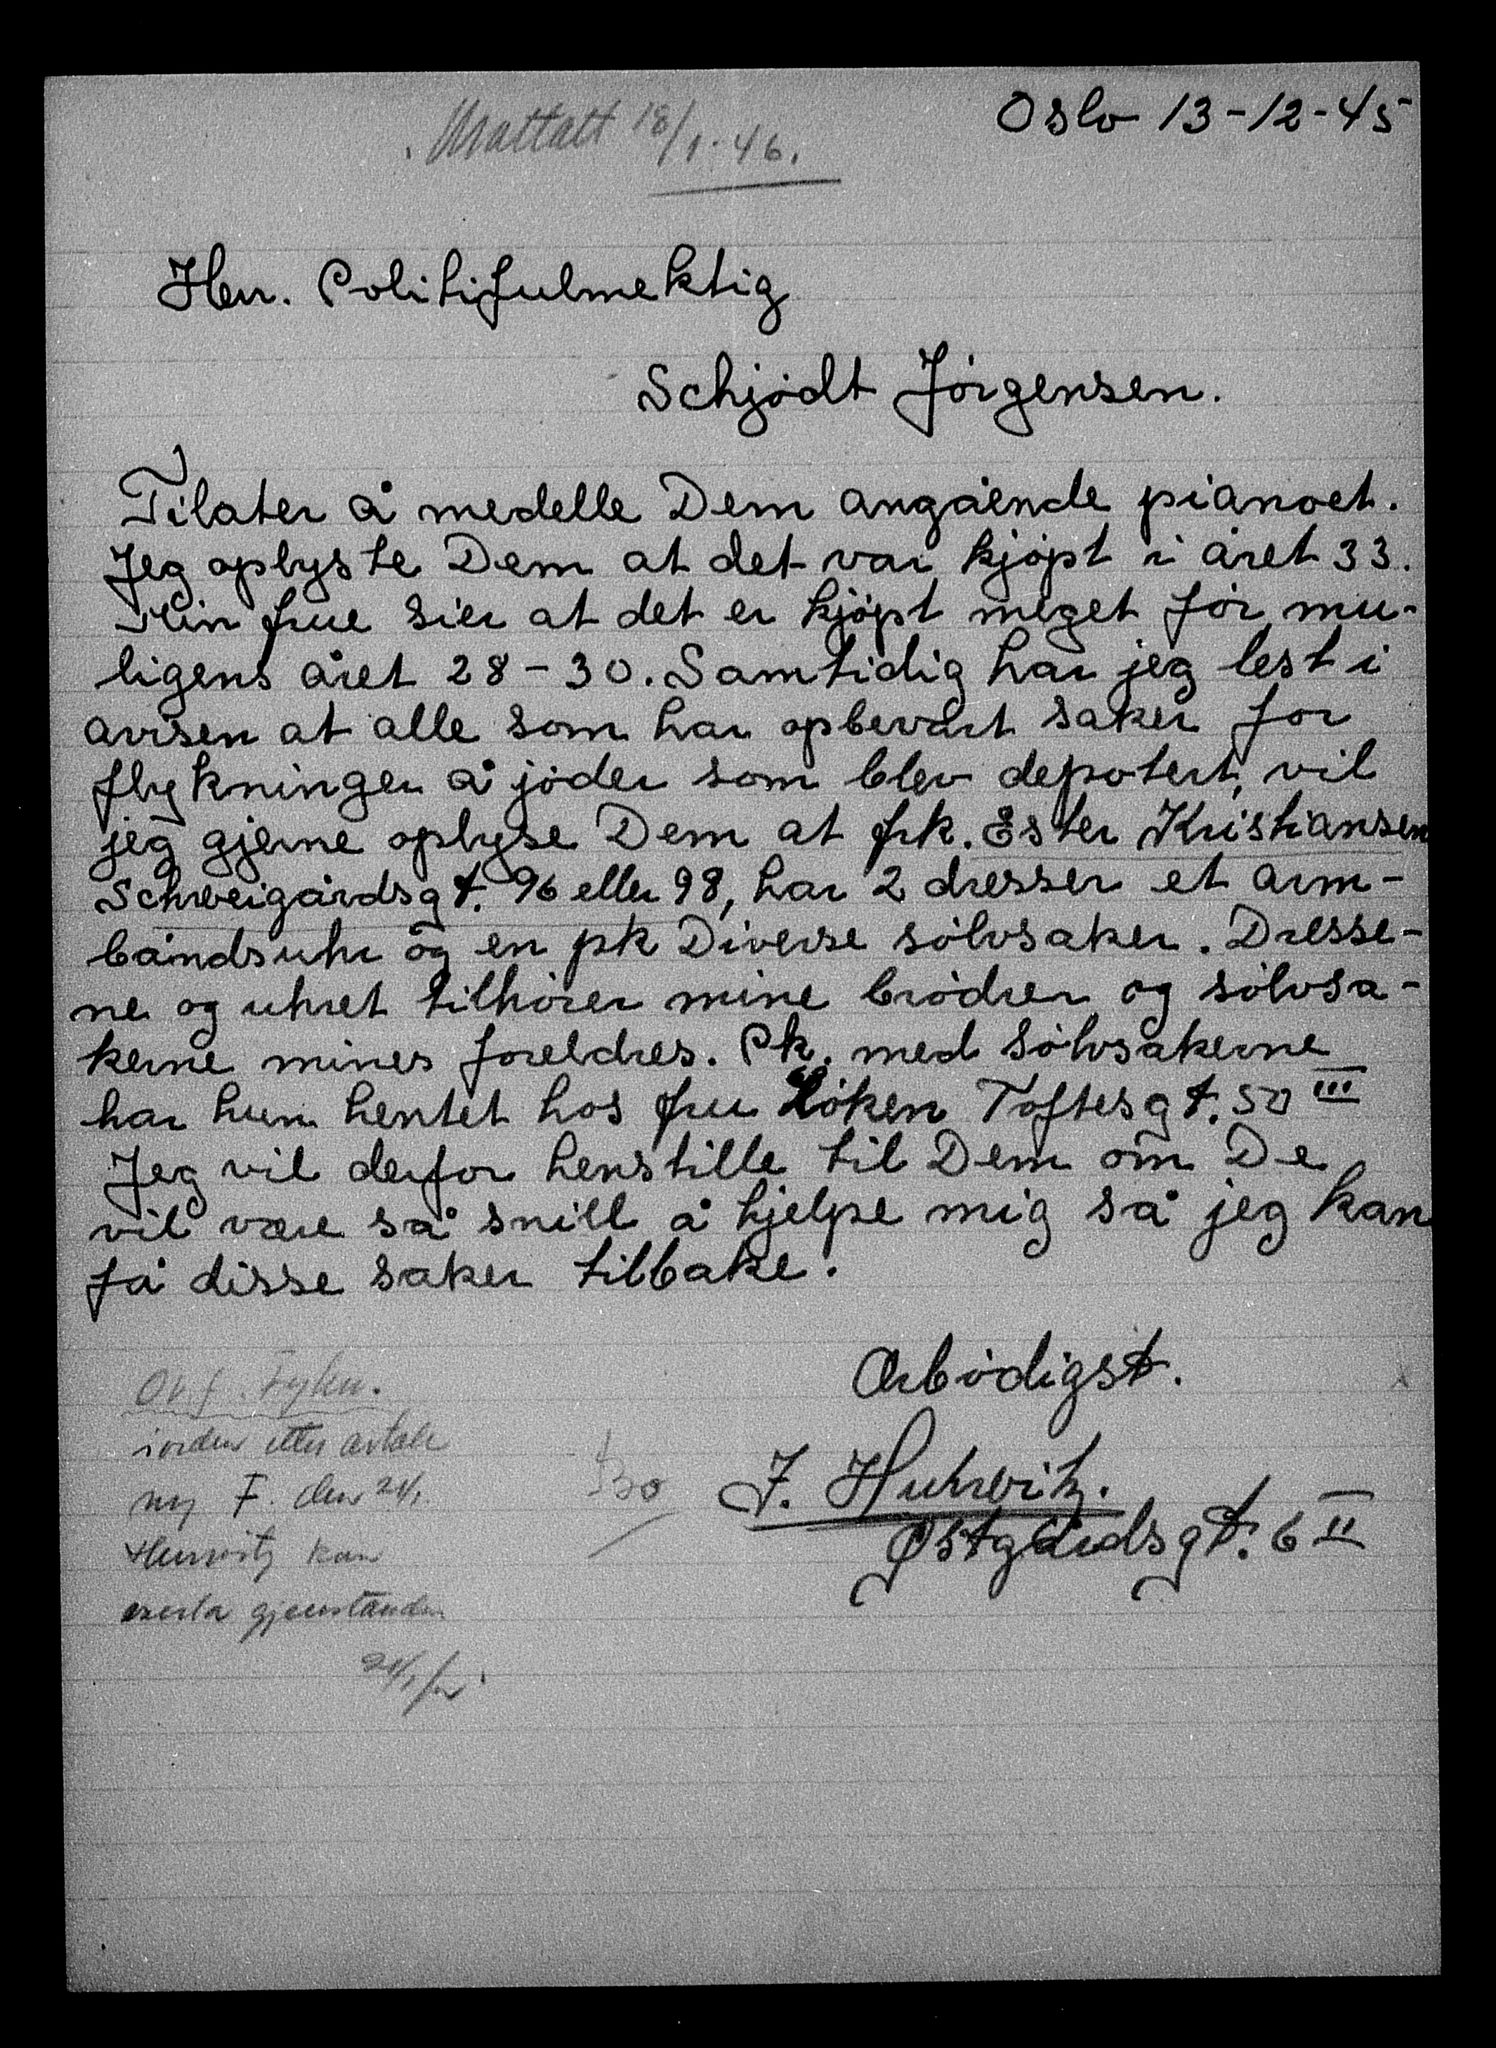 Oslo 13-12-45
Mattatt 18/1-46.
Herr. Politifulmektig
Schjödt Jörgensen.
Tilater å medelle Dem angående pianoet.
Jeg oplyste Dem at det var kjöpt i året 33.
Min frue sier at det er kjöpt meget för mu-
ligens året 28-30. Samtidig har jeg lest i
avisen at alle som har opbevart saker for
flykninger å jöder som blev depotert, vil
jeg gjerne oplyse Dem at frk. Ester Kristiansen
Schweigårdsgt. 96 eller 98, har 2 dresser et arm-
båndsuhr og en pk Diverse sölvsaker. Dresse-
ne og uhret tilhörer mine brödrer og sölvsa-
kerne mines foreldres. Pk. med sölvsakerne
har hun hentet hos fru Löken Toftesgt. 50 III
Jeg vil derfor henstille til Dem om De
vil være så snill å hjelpe mig så jeg kan
få disse saker tilbake.
Ærbödigst.
J. Huhrvitz.
Østgårdsgt. 6 II
iorden etter avtale
F. den 24/1.
Hurwitz kan
gjenstanden
24/1